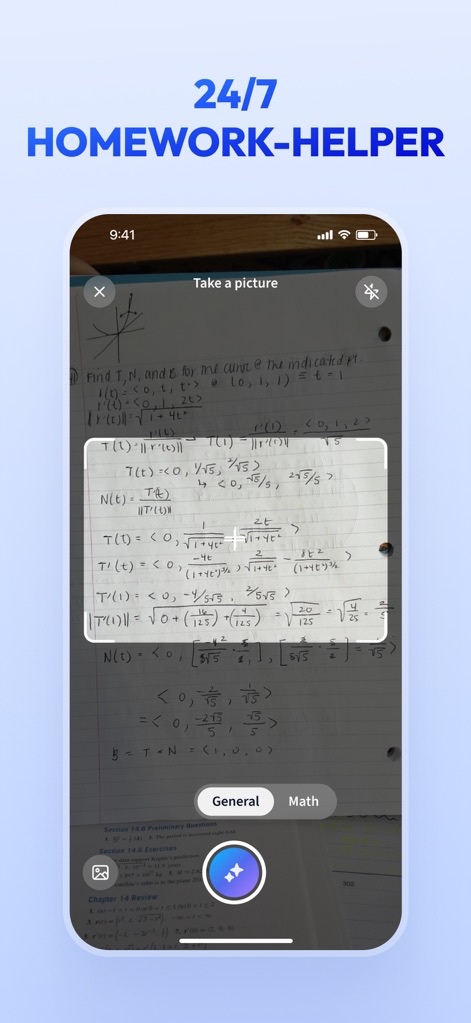 24/7
HOMEWORK-HELPER
9:41
Take a picture
Find T, N, and B for the curve @ the indicated pt.
r(t) = <0, t, t²> @ (0, 1, 1) ≡ t = 1
r'(t) = <0, 1, 2t>
||r'(t)|| = √1 + 4t²
T(t) = r'(t)/||r'(t)|| → T(1) = r'(1)/||r'(1)|| = <0, 1, 2>/√5
T(t) = <0, 1/√5, 2/√5>
↳ <0, √5/5, 2√5/5>
N(t) = T'(t)/||T'(t)||
T(t) = <0, 1/√1+4t², 2t/√1+4t²>
T'(t) = <0, -4t/(1+4t²)^3/2, 2/√1+4t² - 8t²/(1+4t²)^3/2>
T'(1) = <0, -4/5√5, 2/5√5>
||T'(1)|| = √0 + (-16/125) + (4/125) = √20/125 = √4/25 = 2/5
N(t) = <0,
<0, -2/√5, 1/√5>
= <0, -2√5/5, √5/5>
B = T × N = <1, 0, 0>
General Math
Section 14.6 Preliminary Questions
Section 14.6 Exercises
Chapter 14 Review
302